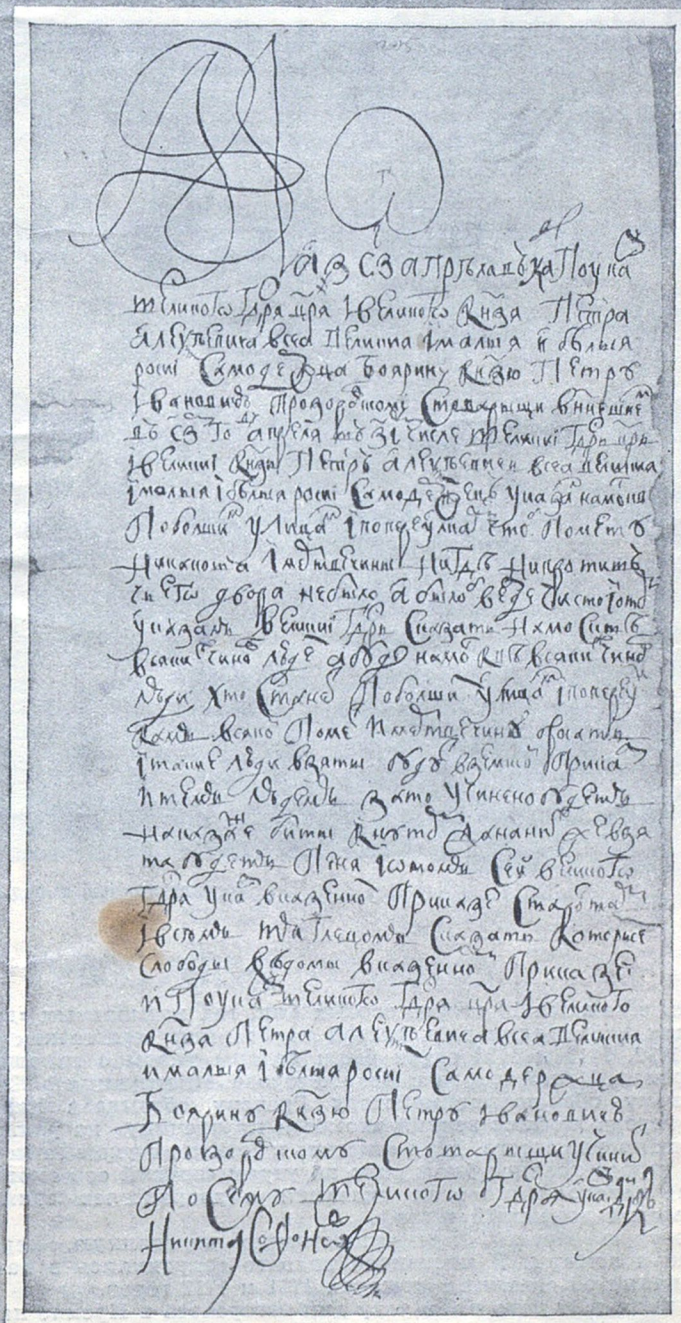 ҂АЗ СЗ апрѣля въ к҃а по ука
великого гдря цря i великого кнзя Петра
Алеѯѣевича всеа великиа i малыя и бѣлыя
росиi самодержца боярину князю Петру
Iвановичю Прозоровскому с товарыщи в ннешнем
въ СЗ го апреля въ зi числе великиi гдрь црь
i великиi кнзь Петръ Алеѯѣевичь всеа великиа
i малыя i бѣлыя росиi самодержецъ указал на москвѣ
по болшим улицам i по переулкам чтоб помету
никакого i мертвечины нигдѣ ни против
чьего двора не было а было б везде чисто i о том
указалъ великиi гдрь сказати на москвѣ
всяких чинов людем а буде на москвѣ всяких чинов
люди хто станет по болшим улицам i по переул
камъ всякой помет и мертвечину бросать
i такие люди взяты будут в земской приказ
и тѣмъ людемъ за то учинено будетъ
наказанье битье кнутом да на них же взя
та будетъ пеня i о томъ сей великого
гдря указ в казенном приказе старостам
i всѣмъ тяглецомъ сказать которые
слободы вѣдомы в казенном приказе
и по указу великого гдря цря i великого
кнзя Петра Алеѯѣевича всеа великиа
и малыя i бѣлыя росиi самодержца
боярину кнзю Петру Iвановичю
Прозоровскому с товарыщи учинить
по сему великого гдря указу